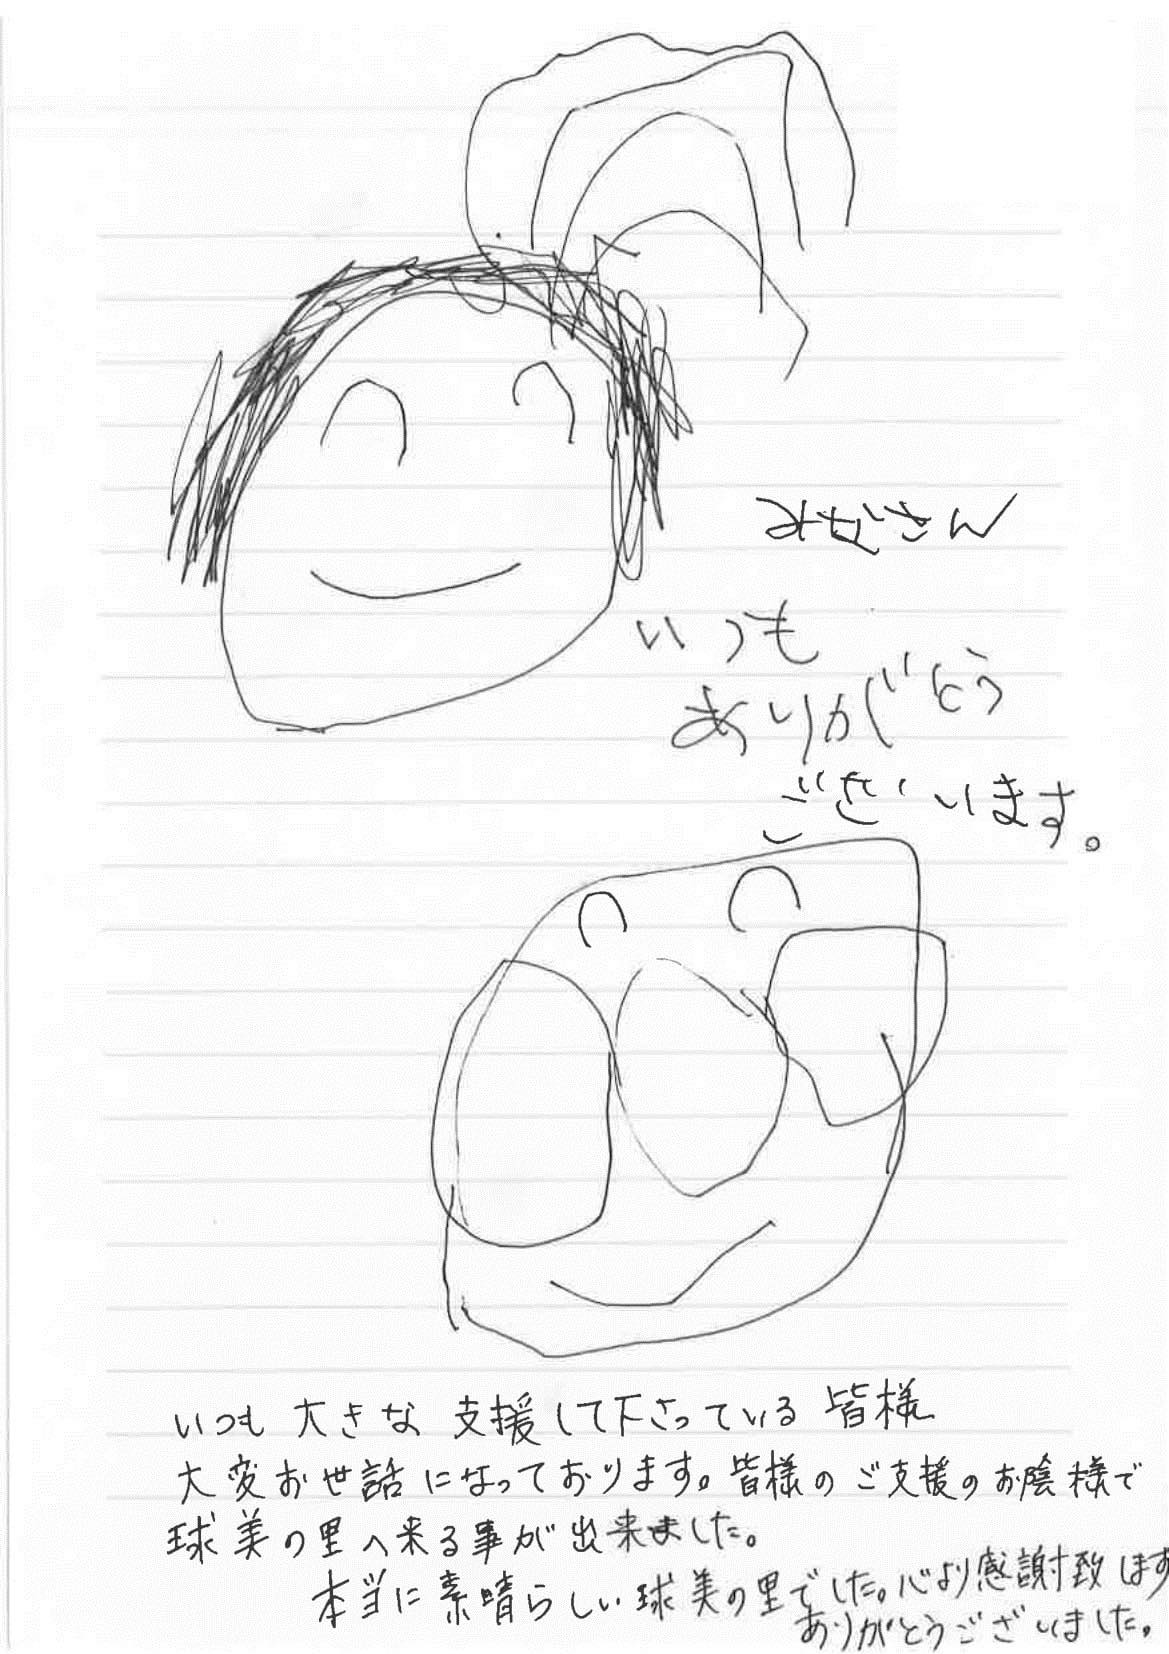 みなさん
いつも
ありがとう
ございます。
いつも 大きな 支援して下さっている 皆様
大変お世話になっております。皆様のご支援のお陰様で
球美の里へ来る事が出来ました。
本当に素晴らしい球美の里でした。心より感謝致します
ありがとうございました。